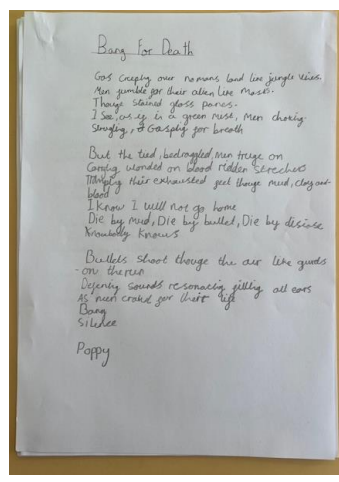 Bang For Death
Gas Creeping over nomans land like jungle vines.
Men fumble for their alien like masks.
Thouge stained glass panes.
I See, as if in a green mist, Men choking
Strugling, Gasping for breath
But the tied, bedraggled, men truge on
Carring wonded on blood ridden strechers
their exhausted feet thouge mud, clay and
blood
I know I will not go home
Die by mud, Die by bullet, Die by disiese
Knowbody knows
Bullets shoot thouge the air like
on the run
Defening sounds resonating filling all ears
As men for their life
Bang
Silence
Poppy